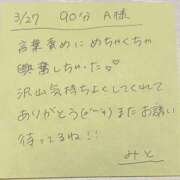 3/27 90分 A様
言葉責めにめちゃくちゃ
興奮しちゃった♡
沢山気持ちよくしてくれて
ありがとう(˘︶˘)またお誘い
待ってるね!!
みと